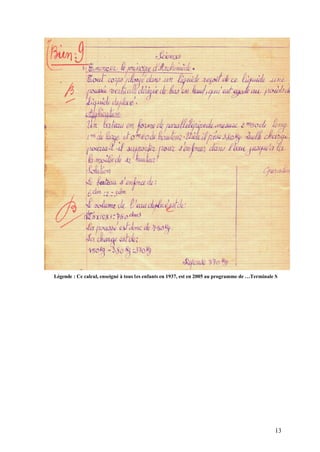 Bien: 9
Sciences
Enoncer le principe d'Archimède
Tout corps plongé dans un liquide reçoit de ce liquide une
B. poussée verticale dirigée de bas en haut, qui est égale au poids du
liquide déplacé.
Application
Un bateau en forme de parallélépipède mesure 2m de long
1m de large et 0m de hauteur. Il pèse Quelle charge
pourrait il supporter pour s'enfoncer dans l'eau jusqu'à la
la moitié de sa hauteur?
Solution
Le bateau s'enfonce de:
Opérations
B Le volume de l'eau déplacée est de:
La poussée est donc de 750Kg.
Sa charge est de:
Réponse 370Kg
Légende : Ce calcul, enseigné à tous les enfants en 1937, est en 2005 au programme de …Terminale S
13